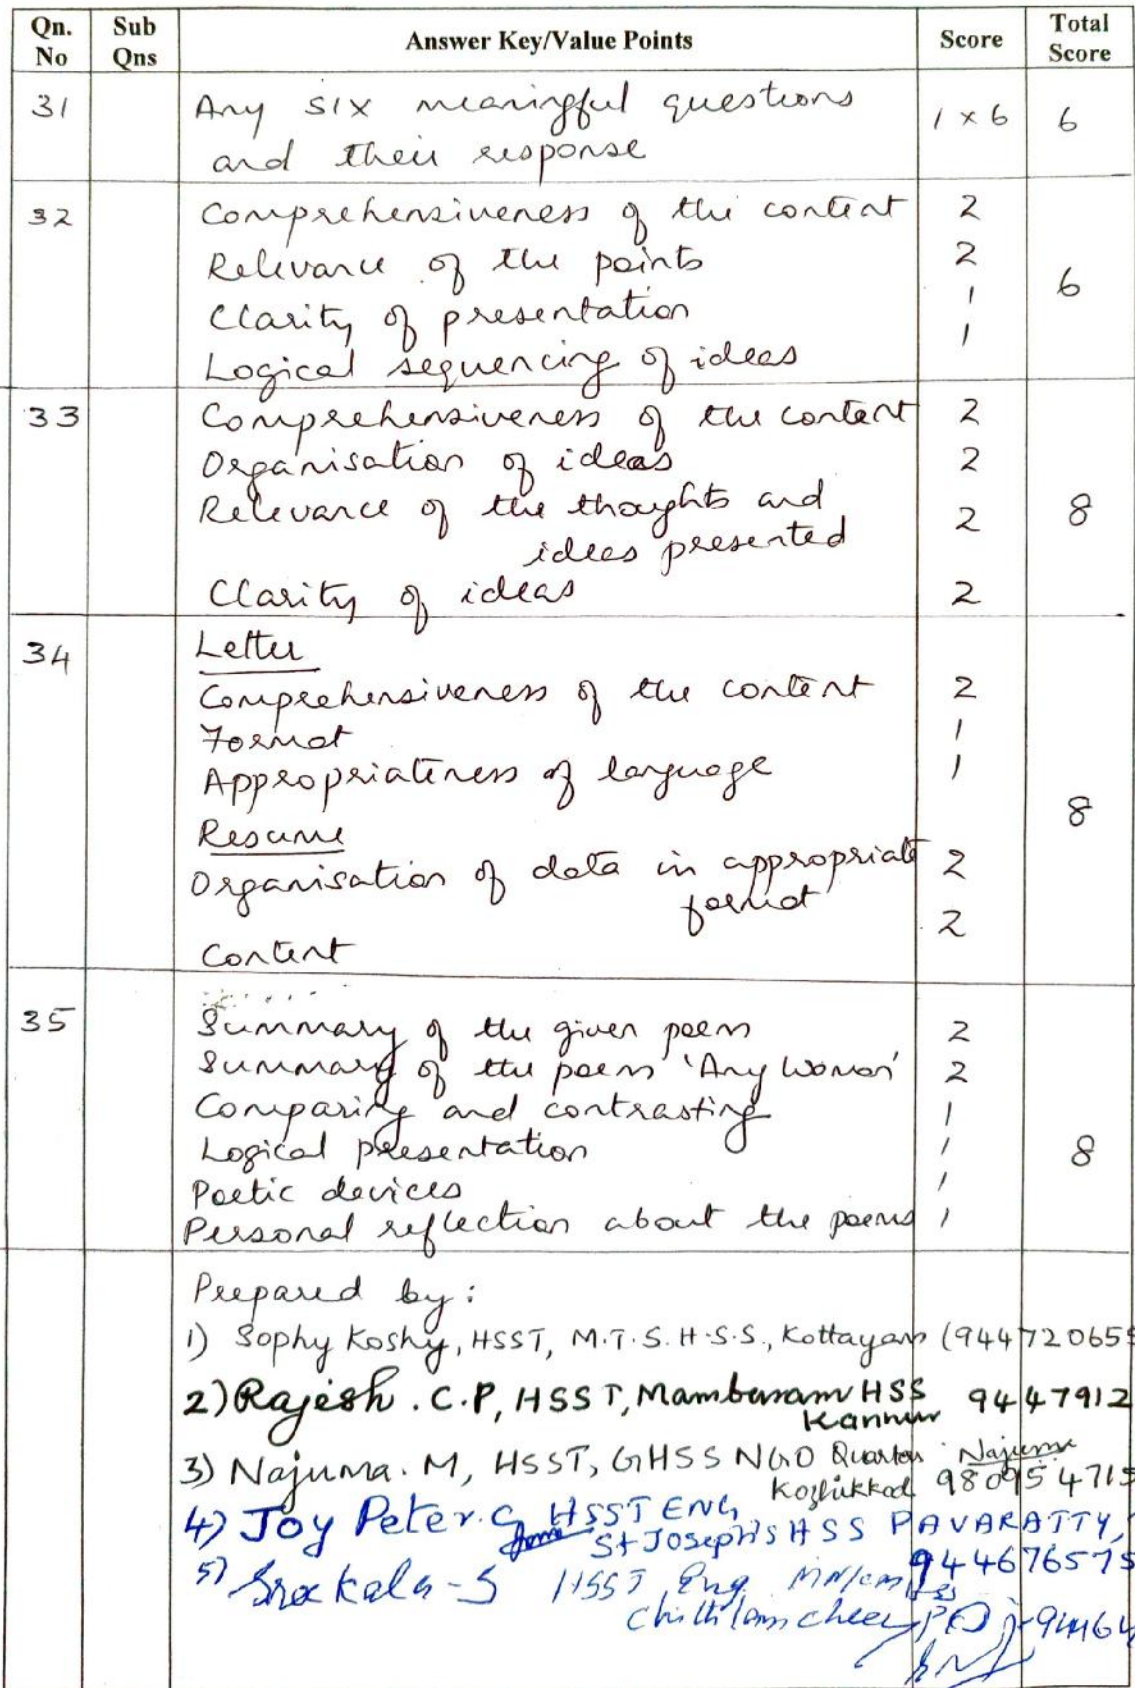 Qn. No Sub Qns Answer Key/Value Points Score Total Score
31 Any six meaningful questions 1 x 6 6
and their response
32 Comprehensiveness of the content 2
Relevance of the points 2
Clarity of presentation 1 6
Logical sequencing of ideas 1
33 Comprehensiveness of the content 2
Organisation of ideas 2
Relevance of the thoughts and
ideas presented 2 8
Clarity of ideas 2
34 Letter
Comprehensiveness of the content 2
Format 1
Appropriateness of language 1
Resume 8
Organisation of data in appropriate 2
format
Content 2
35 Summary of the given poem 2
Summary of the poem 'Any Woman' 2
Comparing and contrasting 1
Logical presentation 1 8
Poetic devices 1
Personal reflection about the poems 1
Prepared by:
1) Sophy Koshy, HSST, M.T.S.H.S.S., Kottayam (944720655
2) Rajesh.C.P, HSST, Mambaram HSS 9447912
Kannur
3) Najuma.M, HSST, GHSS NGO Quarters Najuma
Kozhikkod 980954715
4) Joy Peter.C HSST ENG
St Joseph's HSS PAVARATTY,
944676575
5) Sreekala-S HSST Eng
94464